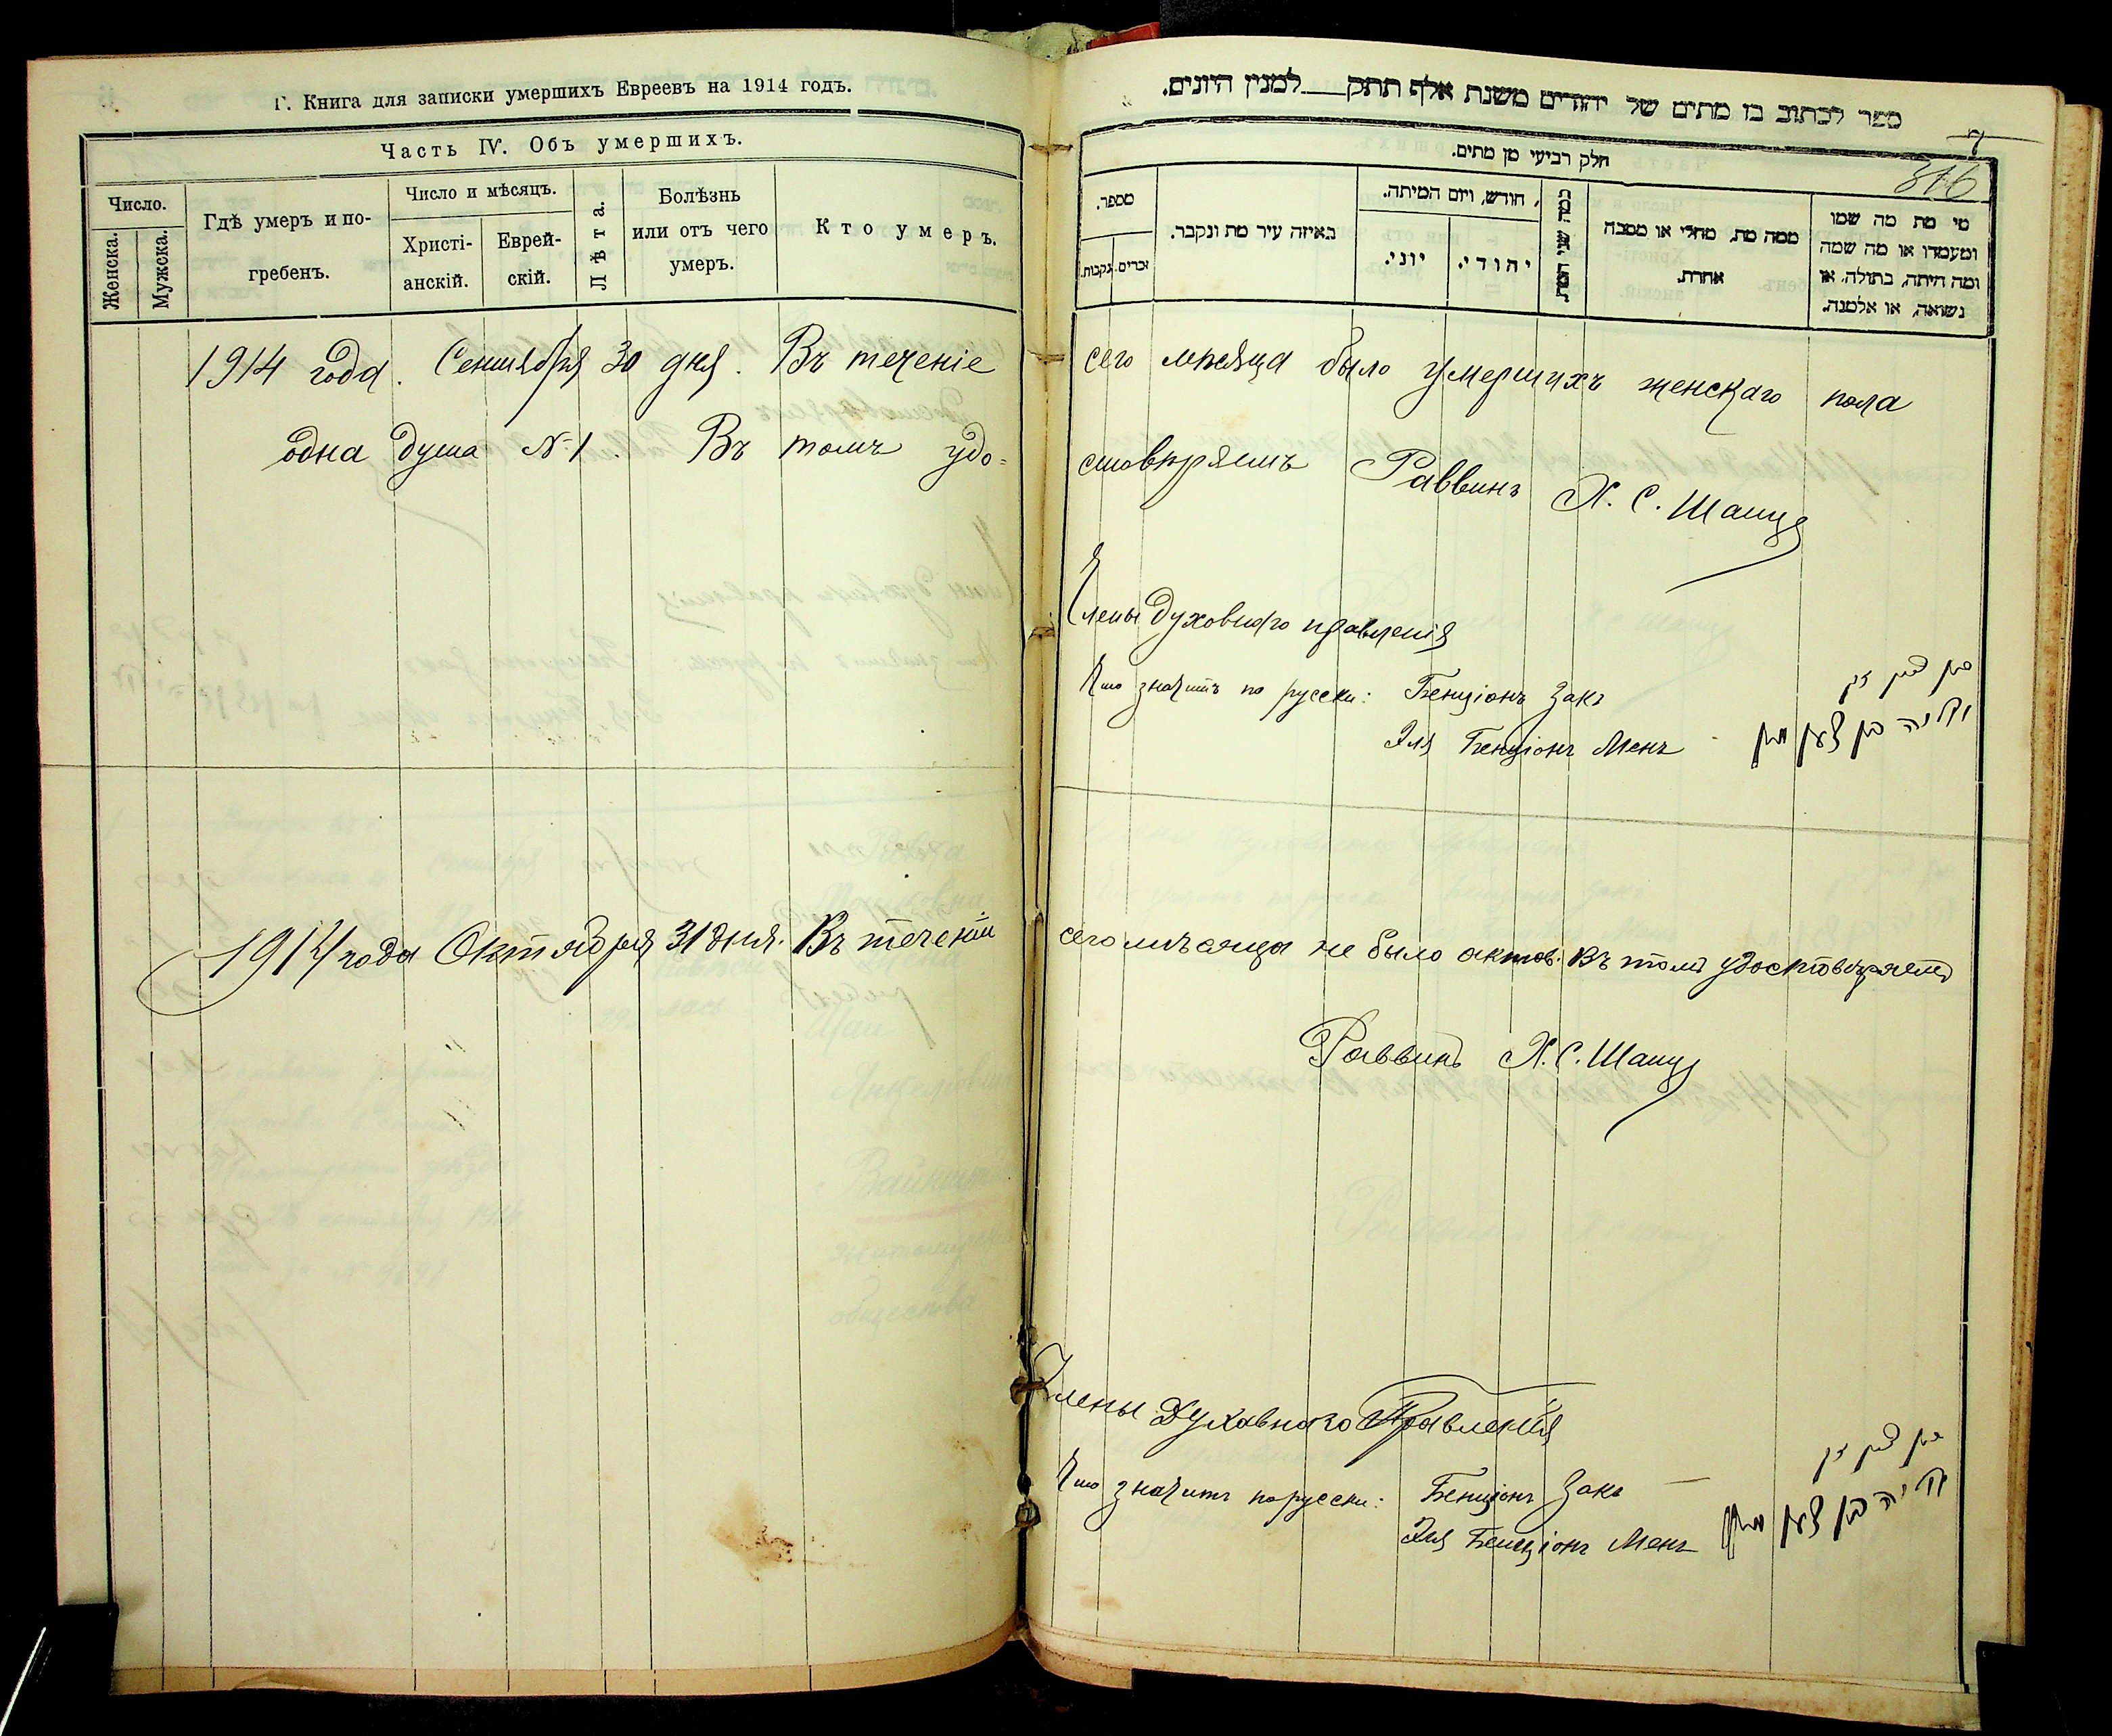 Г. Книга для записки умершихъ Евреевъ на 1914 годъ.
Часть IV. Объ умершихъ.
Число.
Женска.
Мужска.
Гдѣ умеръ и по-
гребенъ.
Число и мѣсяцъ.
Христі-
анскій.
Еврей-
скій.
Лѣта.
Болѣзнь
или отъ чего
умеръ.
Кто умеръ.
ספר לכתוב בו מתים של יהודים משנת אלף תתק___למנין היונים.
7
816
חלק רביעי מן מתים.
מספר.
זכרים.
נקבות.
באיזה עיר מת ונקבר.
חודש, ויום המיתה.
יוני.
יהודי.
כמה שני המת.
ממה מת, מחלי או מסבה
אחרת.
מי מת מה שמו
ומעמדו או מה שמה
ומה היתה, בתולה, או
נשואה, או אלמנה.
1914 года. Сентября 30 дня. Въ теченіе сего мѣсяца было умершихъ женскаго пола
одна душа №1. Въ томъ удо=стовѣряемъ Раввинъ Х. С. Шапиро
Члены духовнаго правленія
Что значитъ по русски: Бенціонъ Закъ
Эля Бенціонъ Менъ
1914 года Октября 31 дня. Въ теченіи сего мѣсяца не было актов. Въ томъ удостовѣряемъ
Раввинъ Х. С. Шапиро
Члены Духовнаго Правленія
Что значитъ по русски: Бенціонъ Закъ
Эля Бенціонъ Менъ